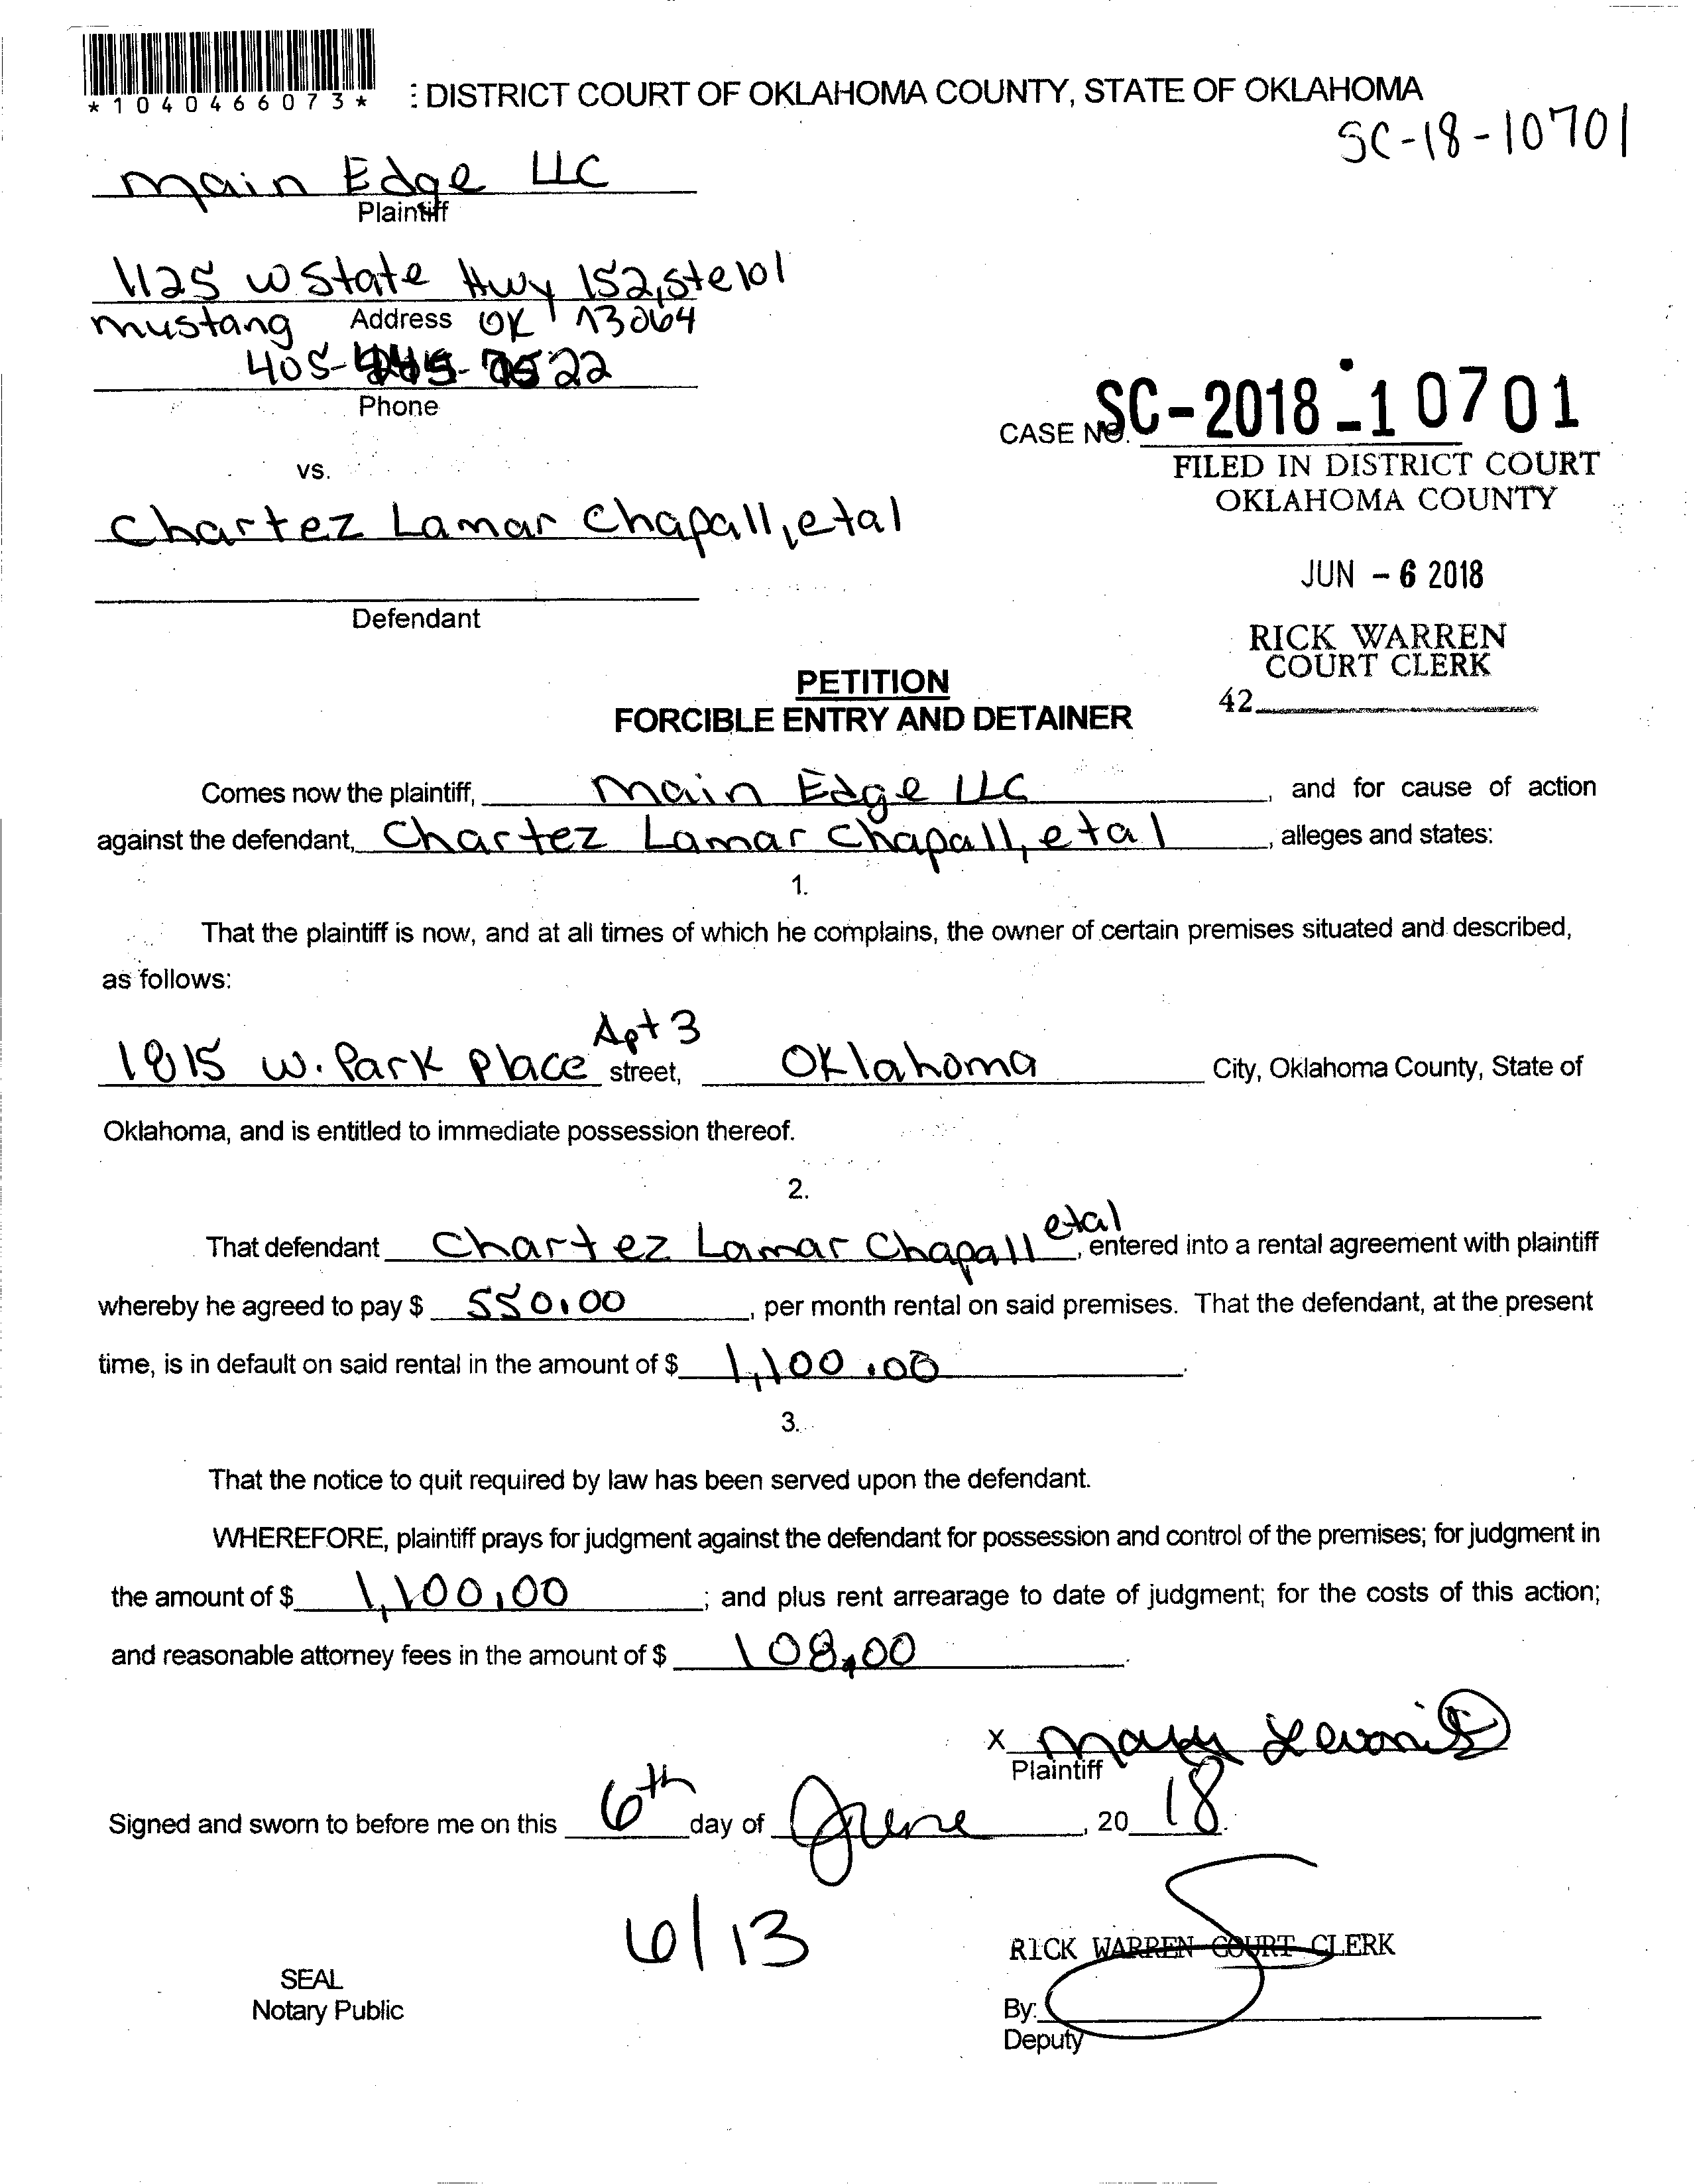 *1040466073*
: DISTRICT COURT OF OKLAHOMA COUNTY, STATE OF OKLAHOMA
SC-18-10701
Main Edge LLC
Plaintiff
1125 W State Hwy 152, Ste 101
Mustang Address OK 73064
405-
22
Phone
CASE NO. SC-2018-10701
FILED IN DISTRICT COURT
OKLAHOMA COUNTY
vs.
Chartez Lamar Chapall, etal
JUN - 6 2018
Defendant
RICK WARREN
COURT CLERK
42
PETITION
FORCIBLE ENTRY AND DETAINER
Comes now the plaintiff, Main Edge LLC, and for cause of action
against the defendant, Chartez Lamar Chapall, etal, alleges and states:
1.
That the plaintiff is now, and at all times of which he complains, the owner of certain premises situated and described,
as follows:
1815 W. Park Place Apt 3 street, Oklahoma City, Oklahoma County, State of
Oklahoma, and is entitled to immediate possession thereof.
2.
That defendant Chartez Lamar Chapall etal, entered into a rental agreement with plaintiff
whereby he agreed to pay $ 550.00, per month rental on said premises. That the defendant, at the present
time, is in default on said rental in the amount of $ 1,100.00.
3.
That the notice to quit required by law has been served upon the defendant.
WHEREFORE, plaintiff prays for judgment against the defendant for possession and control of the premises; for judgment in
the amount of $ 1,100.00; and plus rent arrearage to date of judgment; for the costs of this action;
and reasonable attorney fees in the amount of $ 108.00.
X Mary
Plaintiff
Signed and sworn to before me on this 6th day of June, 2018.
6/13
RICK WARREN COURT CLERK
SEAL
Notary Public
By:
Deputy